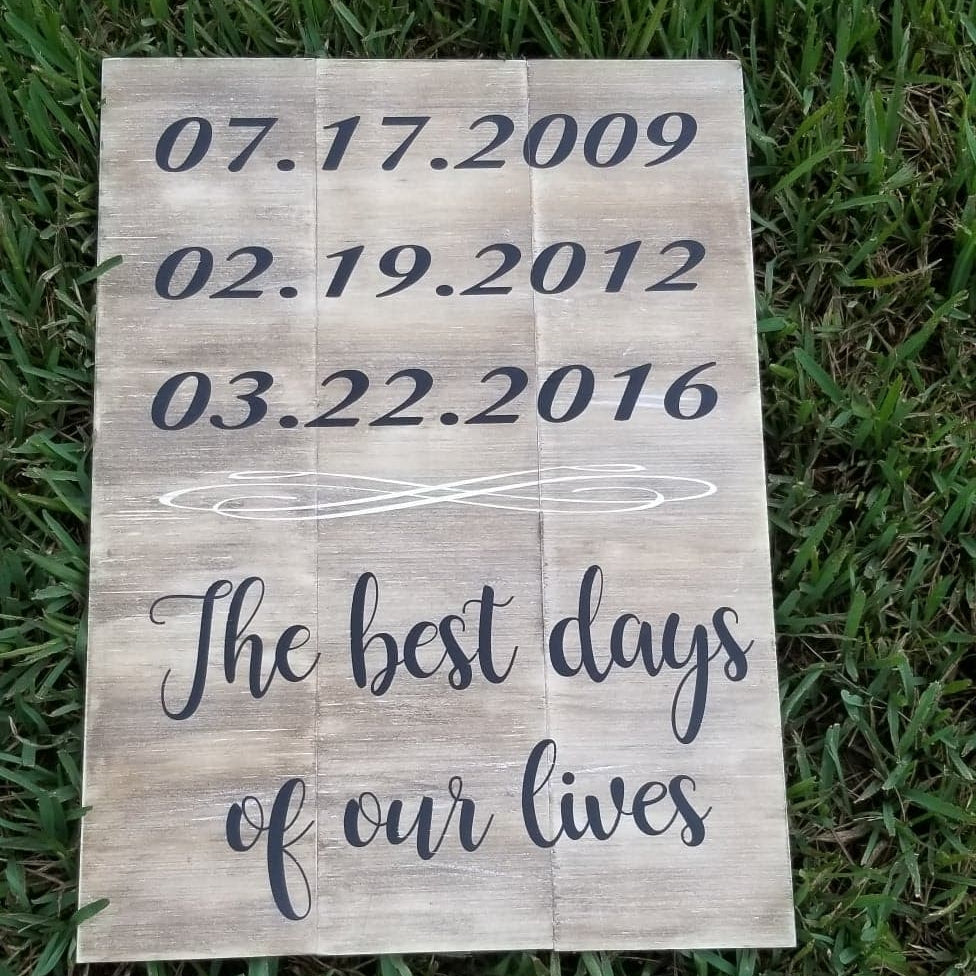 07.17.2009
02.19.2012
03.22.2016
The best days
of our lives